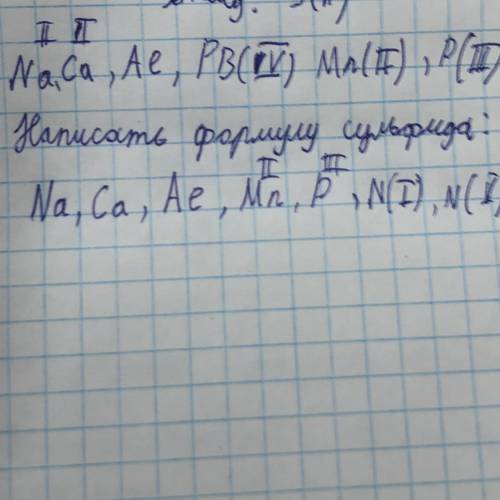 II II
Na, Ca, Ae, PB(IV) Mn(II), P(III)
Написать формулу сульфида:
II III
Na, Ca, Ae, Mn, P, N(I), N(